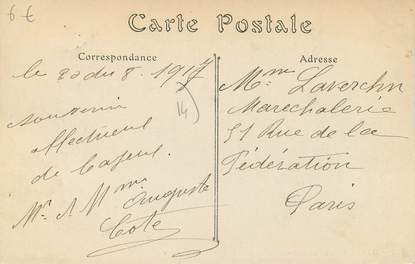 6€
Carte Postale
Correspondance
Adresse
le 20 du 8. 1914
14
Souvenir
affectueux
de
Mr & Mme Auguste
Cote
Mme
Marechalerie
51 Rue de la
Fédération
Paris